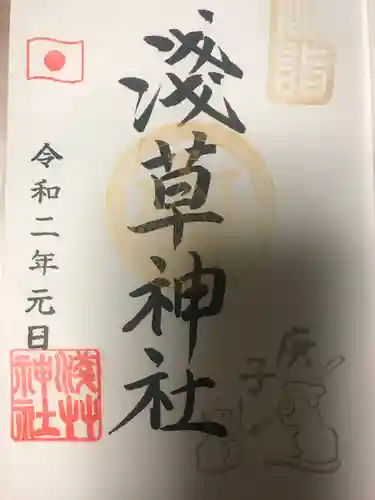 初詣
淺草神社
庚子
令和二年元日
淺草神社